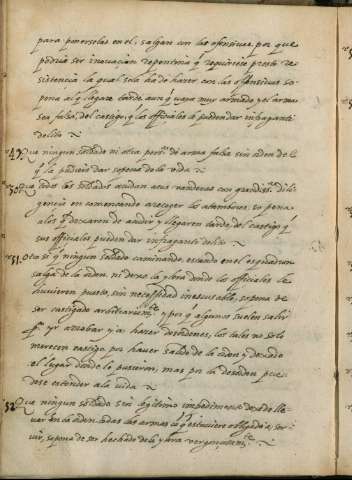 para ponerselas en el; salgan con las offensivas, por que
podria ser inuaçion repentina q̃ requiriese presta re-
sistencia la qual sola ha de hazer con las offensivas so
pena al q̃ llegare tarde aunq̃ vaya muy armado y el arma
sea falsa, del castigo q̃ los officiales le pueden dar infraganti
delito
49. Que ningun soldado ni otra pers.ª de arma falsa sin orden de
q̃ la pudiere dar sopena de la vida
50. Que todos los soldados acudan a sus vanderas con grandiss.ª dili-
gencia en comencando a recoger los atambores. so pena
a los q̃ dexaren de acudir y llegaren tarde del castigo q̃
sus officiales pueden dar infraganti delito
51. Otro si q̃ ningun soldado caminando, estando en el esquadron
salga de la orden. ni dexe la hilera donde los officiales le
huvieren puesto, sin necessidad inescusable, sopena de
ser castigado arbitrariam.te y por q̃ algunos suelen salir
yr a robar y a hazer desordenes, los tales no solo
merecen castigo por haver salido de la orden y dexado
el lugar donde lo pusieron, mas por la desorden pue-
dese estender a la vida
52. Que ningun soldado sin legitimo impedimento dexe de lle-
uar en la orden todas las armas cõ q̃ estuviere obligado a ser-
uir, sopena de ser hechado de la hilera vergonçosam.te